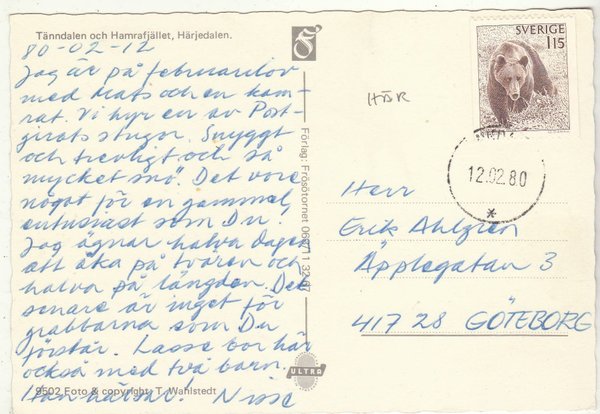 Tänndalen och Hamrafjället, Härjedalen.
80-02-12
Jag är på februarilov
med Mats och en kam-
rat. Vi hyr en av Post-
girots stugor. Snyggt
och trevligt och så
mycket snö. Det vore
något för en gammal
entusiast som Du!
Jag ägnar halva dagen
att åka på tvären och
halva på längden. Det
senare är inget för
grabbarna som Du
förstår. Lasse bor här
också med två barn.
hälsar! Nisse
9502 Foto & copyright: T. Wahlstedt
Förlag: Frösötornet
ULTRA
HÄR
SVERIGE
115
12.02.80
*
Herr
Erik Ahlgren
Äpplegatan 3
417 28 GÖTEBORG